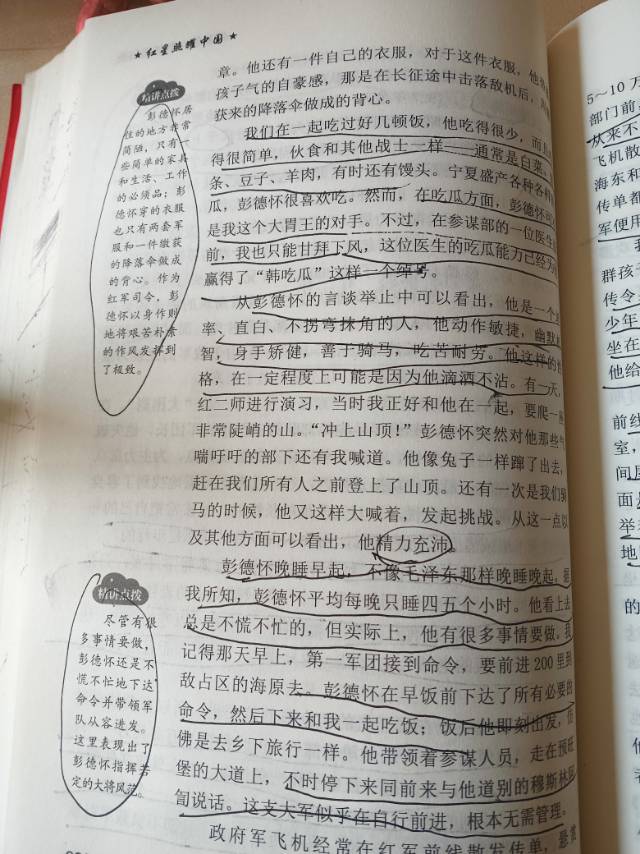 ★ 红星照耀中国 ★
章。他还有一件自己的衣服，对于这件衣服，他
孩子气的自豪感，那是在长征途中击落敌机后，
获来的降落伞做成的背心。
我们在一起吃过好几顿饭，他吃得很少，而且
得很简单，伙食和其他战士一样——通常是白菜、
条、豆子、羊肉，有时还有馒头。宁夏盛产各种各样
瓜，彭德怀很喜欢吃。然而，在吃瓜方面，彭德怀
是我这个大胃王的对手。不过，在参谋部的一位医生
前，我也只能甘拜下风，这位医生的吃瓜能力已经为
赢得了“韩吃瓜”这样一个绰号。
从彭德怀的言谈举止中可以看出，他是一个
率、直白、不拐弯抹角的人，他动作敏捷，幽默
智，身手矫健，善于骑马，吃苦耐劳。他这样的
格，在一定程度上可能是因为他滴酒不沾。有一天，
红二师进行演习，当时我正好和他在一起，要爬一
非常陡峭的山。“冲上山顶！”彭德怀突然对他那些气
喘吁吁的部下还有我喊道。他像兔子一样蹿了出去，
赶在我们所有人之前登上了山顶。还有一次是我们骑
马的时候，他又这样大喊着，发起挑战。从这一点以
及其他方面可以看出，他精力充沛。
彭德怀晚睡早起，不像毛泽东那样晚睡晚起，据
我所知，彭德怀平均每晚只睡四五个小时。他看上去
总是不慌不忙的，但实际上，他有很多事情要做，我
记得那天早上，第一军团接到命令，要前进200里到
敌占区的海原去。彭德怀在早饭前下达了所有必要的
命令，然后下来和我一起吃饭；饭后他即刻出发，仿
佛是去乡下旅行一样。他带领着参谋人员，走在预旺
堡的大道上，不时停下来同前来与他道别的穆斯林阿
訇说话。这支大军似乎在自行前进，根本无需管理。
政府军飞机经常在红军前线散发传单，悬赏
精讲点拨
彭德怀居
住的地方非常
简陋，只有一
些简单的家具
和生活、工作
的必须品；彭
德怀穿的衣服
也只有两套军
服和一件缴获
的降落伞做成
的背心。作为
红军司令，彭
德怀以身作则
地将艰苦朴素
的作风发挥到
了极致。
精讲点拨
尽管有很
多事情要做，
彭德怀还是不
慌不忙地下达
命令并带领军
队从容进发。
这里表现出了
彭德怀指挥若
定的大将风范。
5～10万
部门前
从来不
飞机散
海东和
传单都
军便用
群孩子
传令
少年
坐在
他给
前线
室，
间居
举
地
的